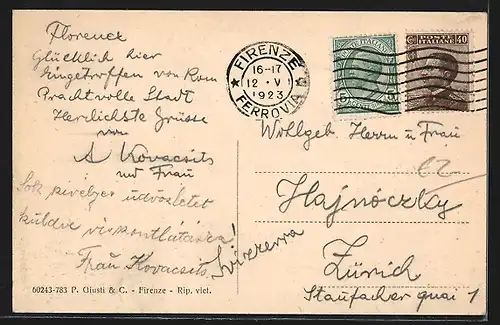 Florence
Glücklich hier
eingetroffen von Rom
Prachtvolle Stadt
Herzlichste Grüsse
von
A Kovacsits
und Frau
Sok szivélyes üdvözletet
küldve viszontlátásra!
Frau Kovacsits
FIRENZE
16-17
12 · V
1923
FERROVIA
ITALIANE 40
Wohlgeb. Herrn u Frau
Hajnóczky
Zürich
Svizzerra
Stauffacher quai 1
60243-783 P. Giusti & C. - Firenze - Rip. viet.